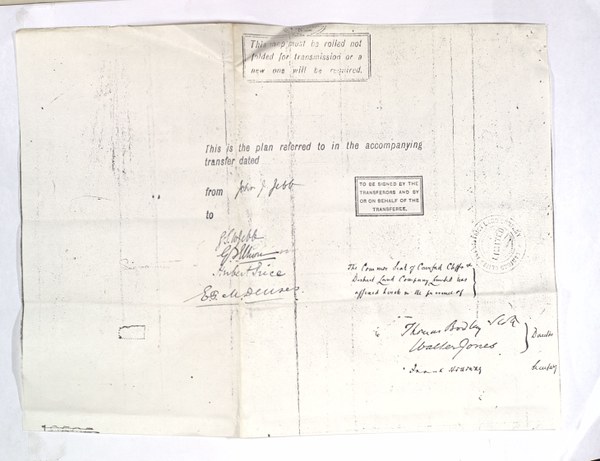 This map must be rolled not
folded for transmission or a
new one will be required.
This is the plan referred to in the accompanying
transfer dated
from John J. Jebb
to
TO BE SIGNED BY THE
TRANSFERORS AND BY
OR ON BEHALF OF THE
TRANSFEREE.
The Common Seal of Canford Cliffs &
District Land Company Limited was
affixed hereto in the presence of
Thomas Bodley
Walter Jones
Director
Secretary